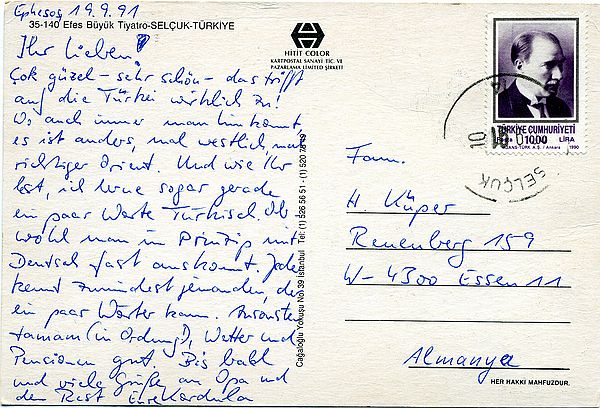 Ephesos, 19.9.91
35-140 Efes Büyük Tiyatro-SELÇUK-TÜRKIYE
Ihr Lieben!
Çok güzel - sehr schön - das trifft
auf die Türkei wirklich zu!
Wo auch immer man hinkommt
es ist anders, mal westlich, mal
richtiger Orient. Und wie Ihr
lest, ich lerne sogar gerade
ein paar Worte Türkisch. Ob-
wohl man im Prinzip mit
Deutsch fast auskommt. Jeder
kennt zumindest jemanden, der
ein paar Wörter kann. Ansonsten
tamam (in Ordung!), Wetter und
Pensionen gut. Bis bald
und viele Grüße an Opa und
den Rest Eure Kordula
HITIT COLOR
KARTPOSTAL SANAYİ TİC. VE
PAZARLAMA LİMİTED ŞİRKETİ
Cağaloğlu Yokuşu No: 39 İstanbul Tel: (1) 526 56 51 - (1) 520 78 49
TÜRKİYE CUMHURİYETİ
1000 LİRA
AJANS-TÜRK A.Ş. / Ankara 1990
10
SELÇUK
Fam.
H. Küper
Reuenberg 159
W-4300 Essen 11
Almanya
HER HAKKI MAHFUZDUR.